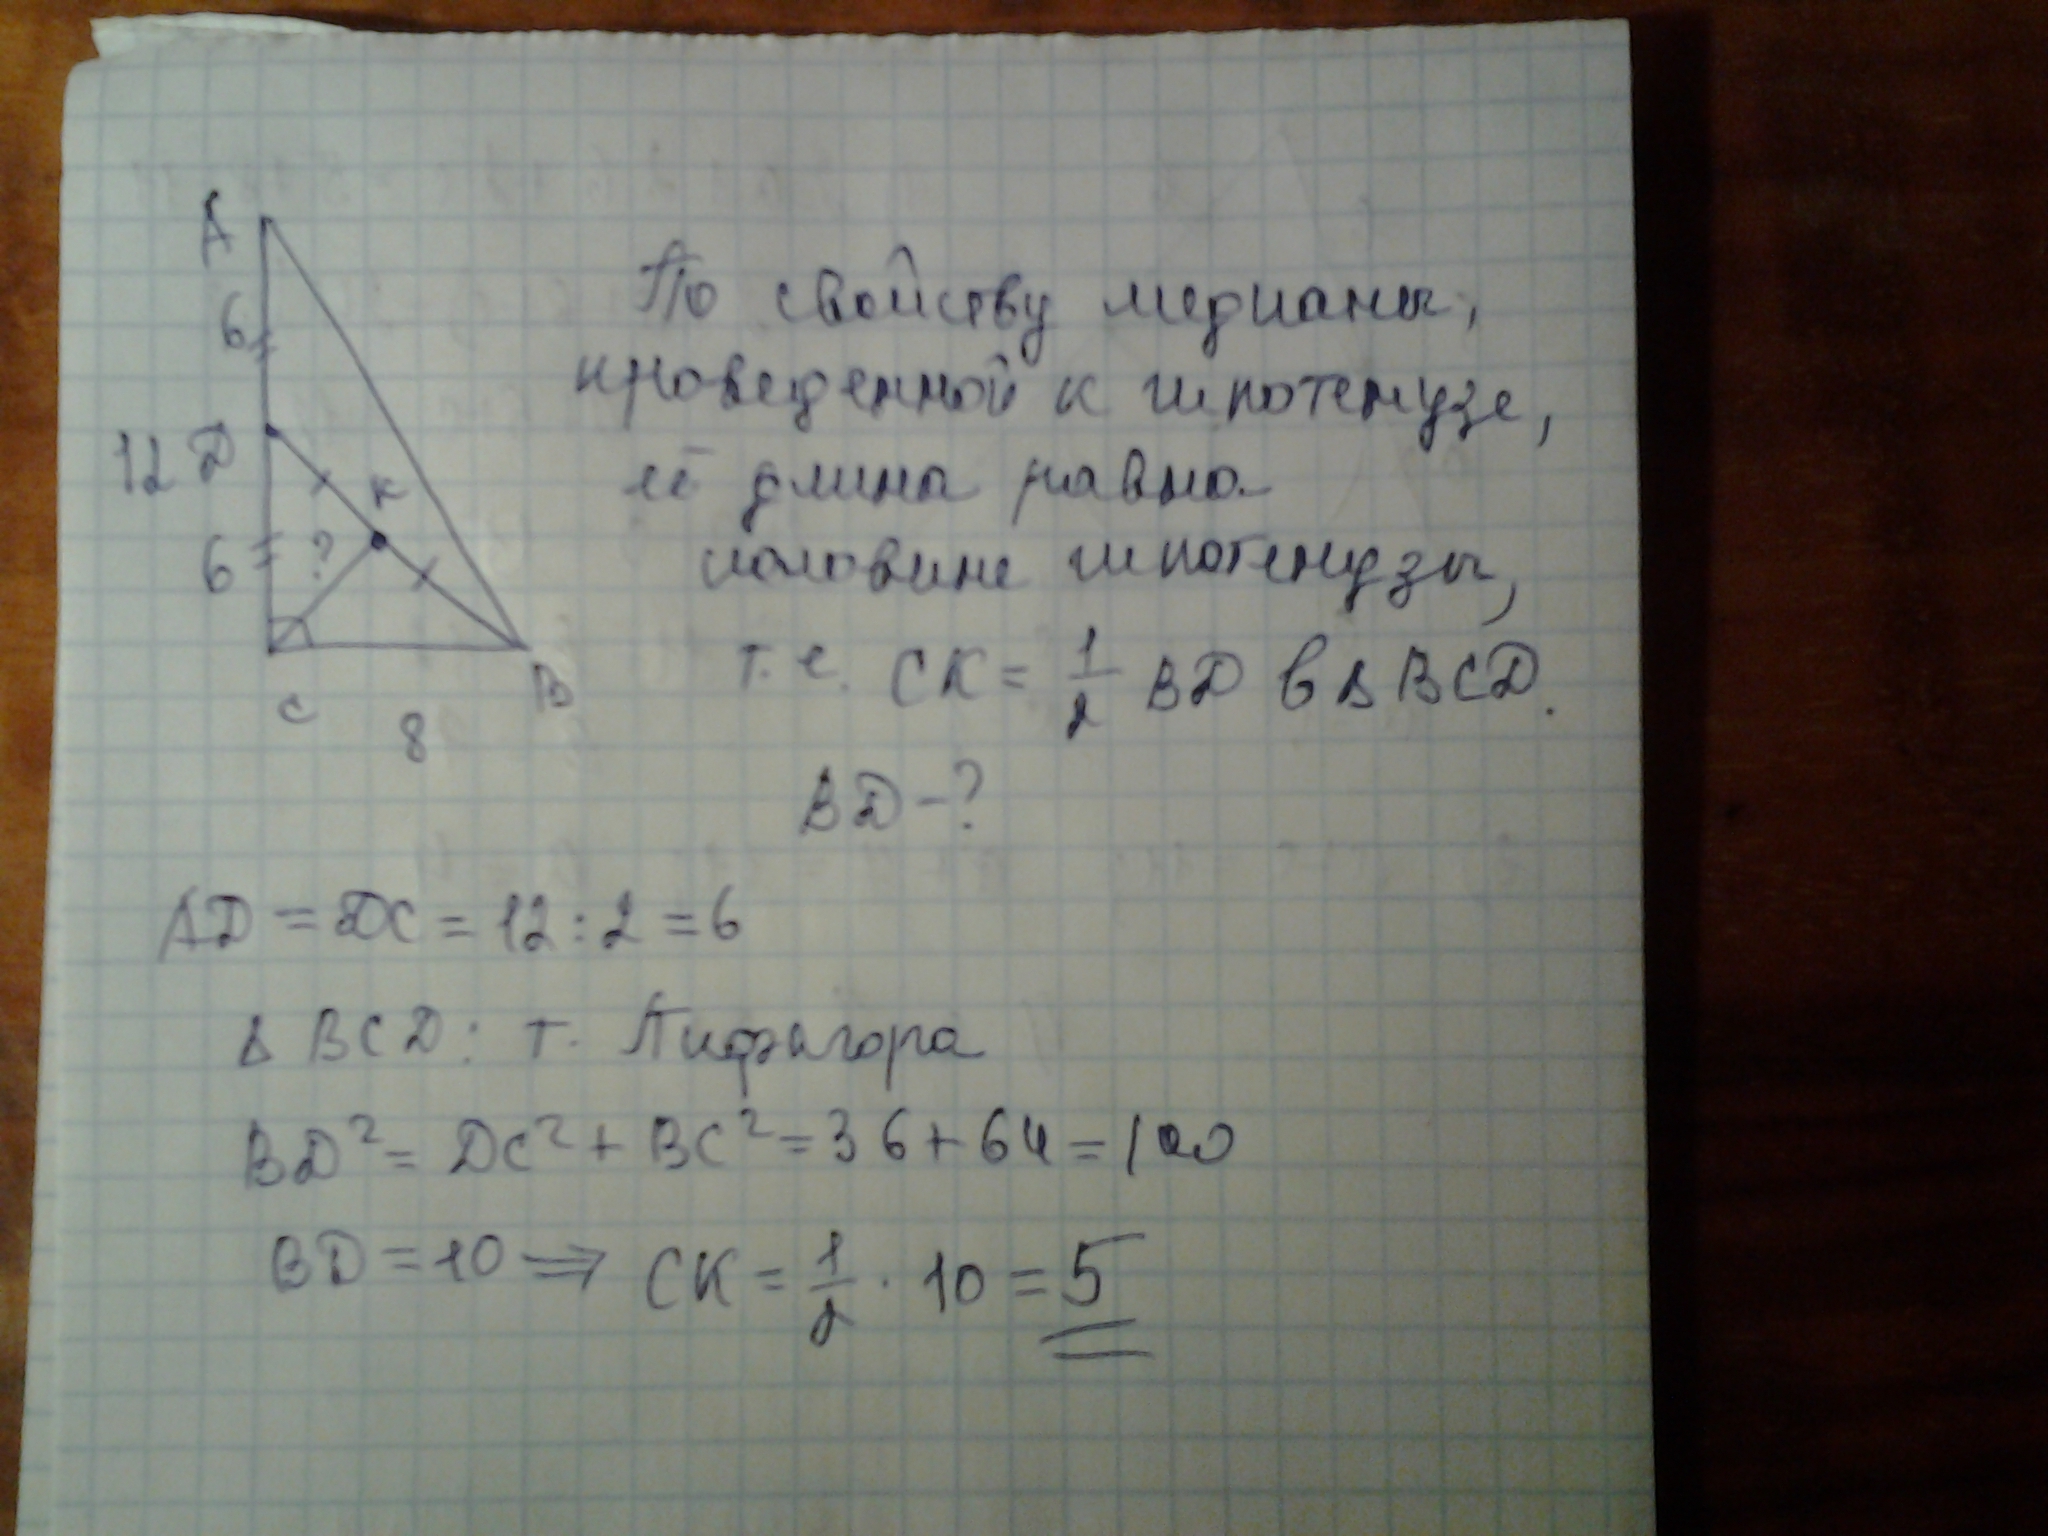 A
6
12 D
K
6
?
C
B
8
По свойству медианы,
проведенной к гипотенузе,
её длина равна
половине гипотенузы,
т.е. CK = 1/2 BD в Δ BCD.
BD - ?
AD = DC = 12 : 2 = 6
Δ BCD: т. Пифагора
BD² = DC² + BC² = 36 + 64 = 100
BD = 10 ⇒ CK = 1/2 · 10 = 5